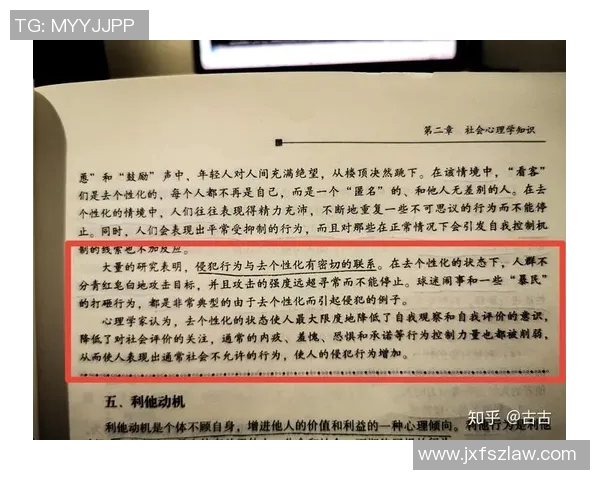 TG: MYYJJPP
第二章 社会心理学知识
恿”和“鼓励”声中，年轻人对人间充满绝望，从楼顶决然跳下。在该情境中，“看客”
们是去个性化的，每个人都不再是自己，而是一个“匿名”的、和他人无差别的人。在去
个性化的情境中，人们往往表现得精力充沛，不断地重复一些不可思议的行为而不能停
止。同时，人们会表现出平常受抑制的行为，而且对那些在正常情况下会引发自我控制机
制的线索也不加反应。
大量的研究表明，侵犯行为与去个性化有密切的联系。在去个性化的状态下，人群不
分青红皂白地攻击目标，并且攻击的强度远超寻常而不能停止。球迷闹事和一些“暴民”
的打砸行为，都是非常典型的由于去个性化而引起侵犯的例子。
心理学家认为，去个性化的状态使人最大限度地降低了自我观察和自我评价的意识，
降低了对社会评价的关注，通常的内疚、羞愧、恐惧和承诺等行为控制力量也都被削弱，
从而使人表现出通常社会不允许的行为，使人的侵犯行为增加。
五、利他动机
利他动机是个体不顾自身，增进他人的价值和利益的一种心理倾向。利他行为是利他
知乎 @古古
www.jxfszlaw.com